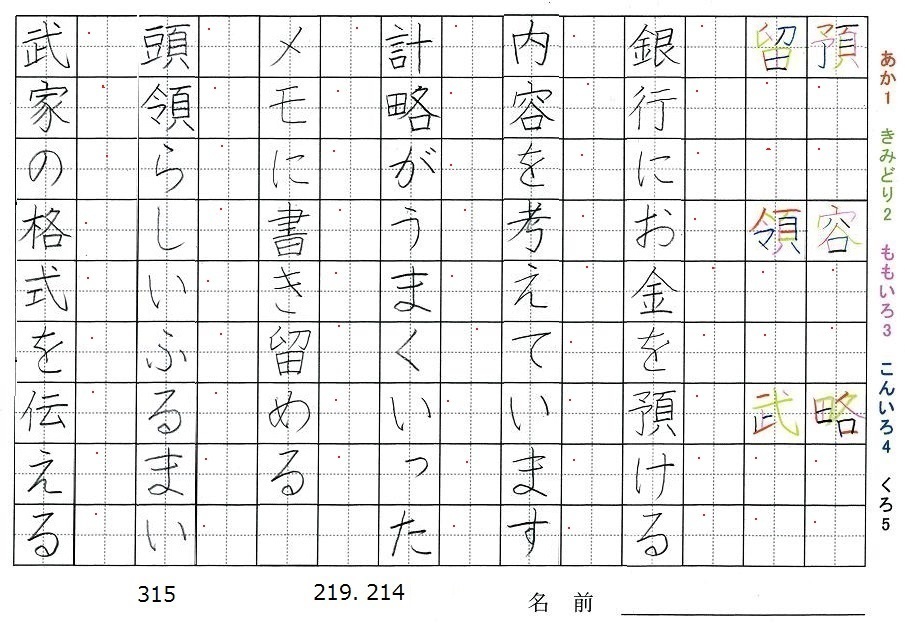 あか1 きみどり2 ももいろ3 こんいろ4 くろ5
預 容 略
留 領 武
銀行にお金を預ける
内容を考えています
計略がうまくいった
メモに書き留める
頭領らしいふるまい
武家の格式を伝える
315
219. 214
名前